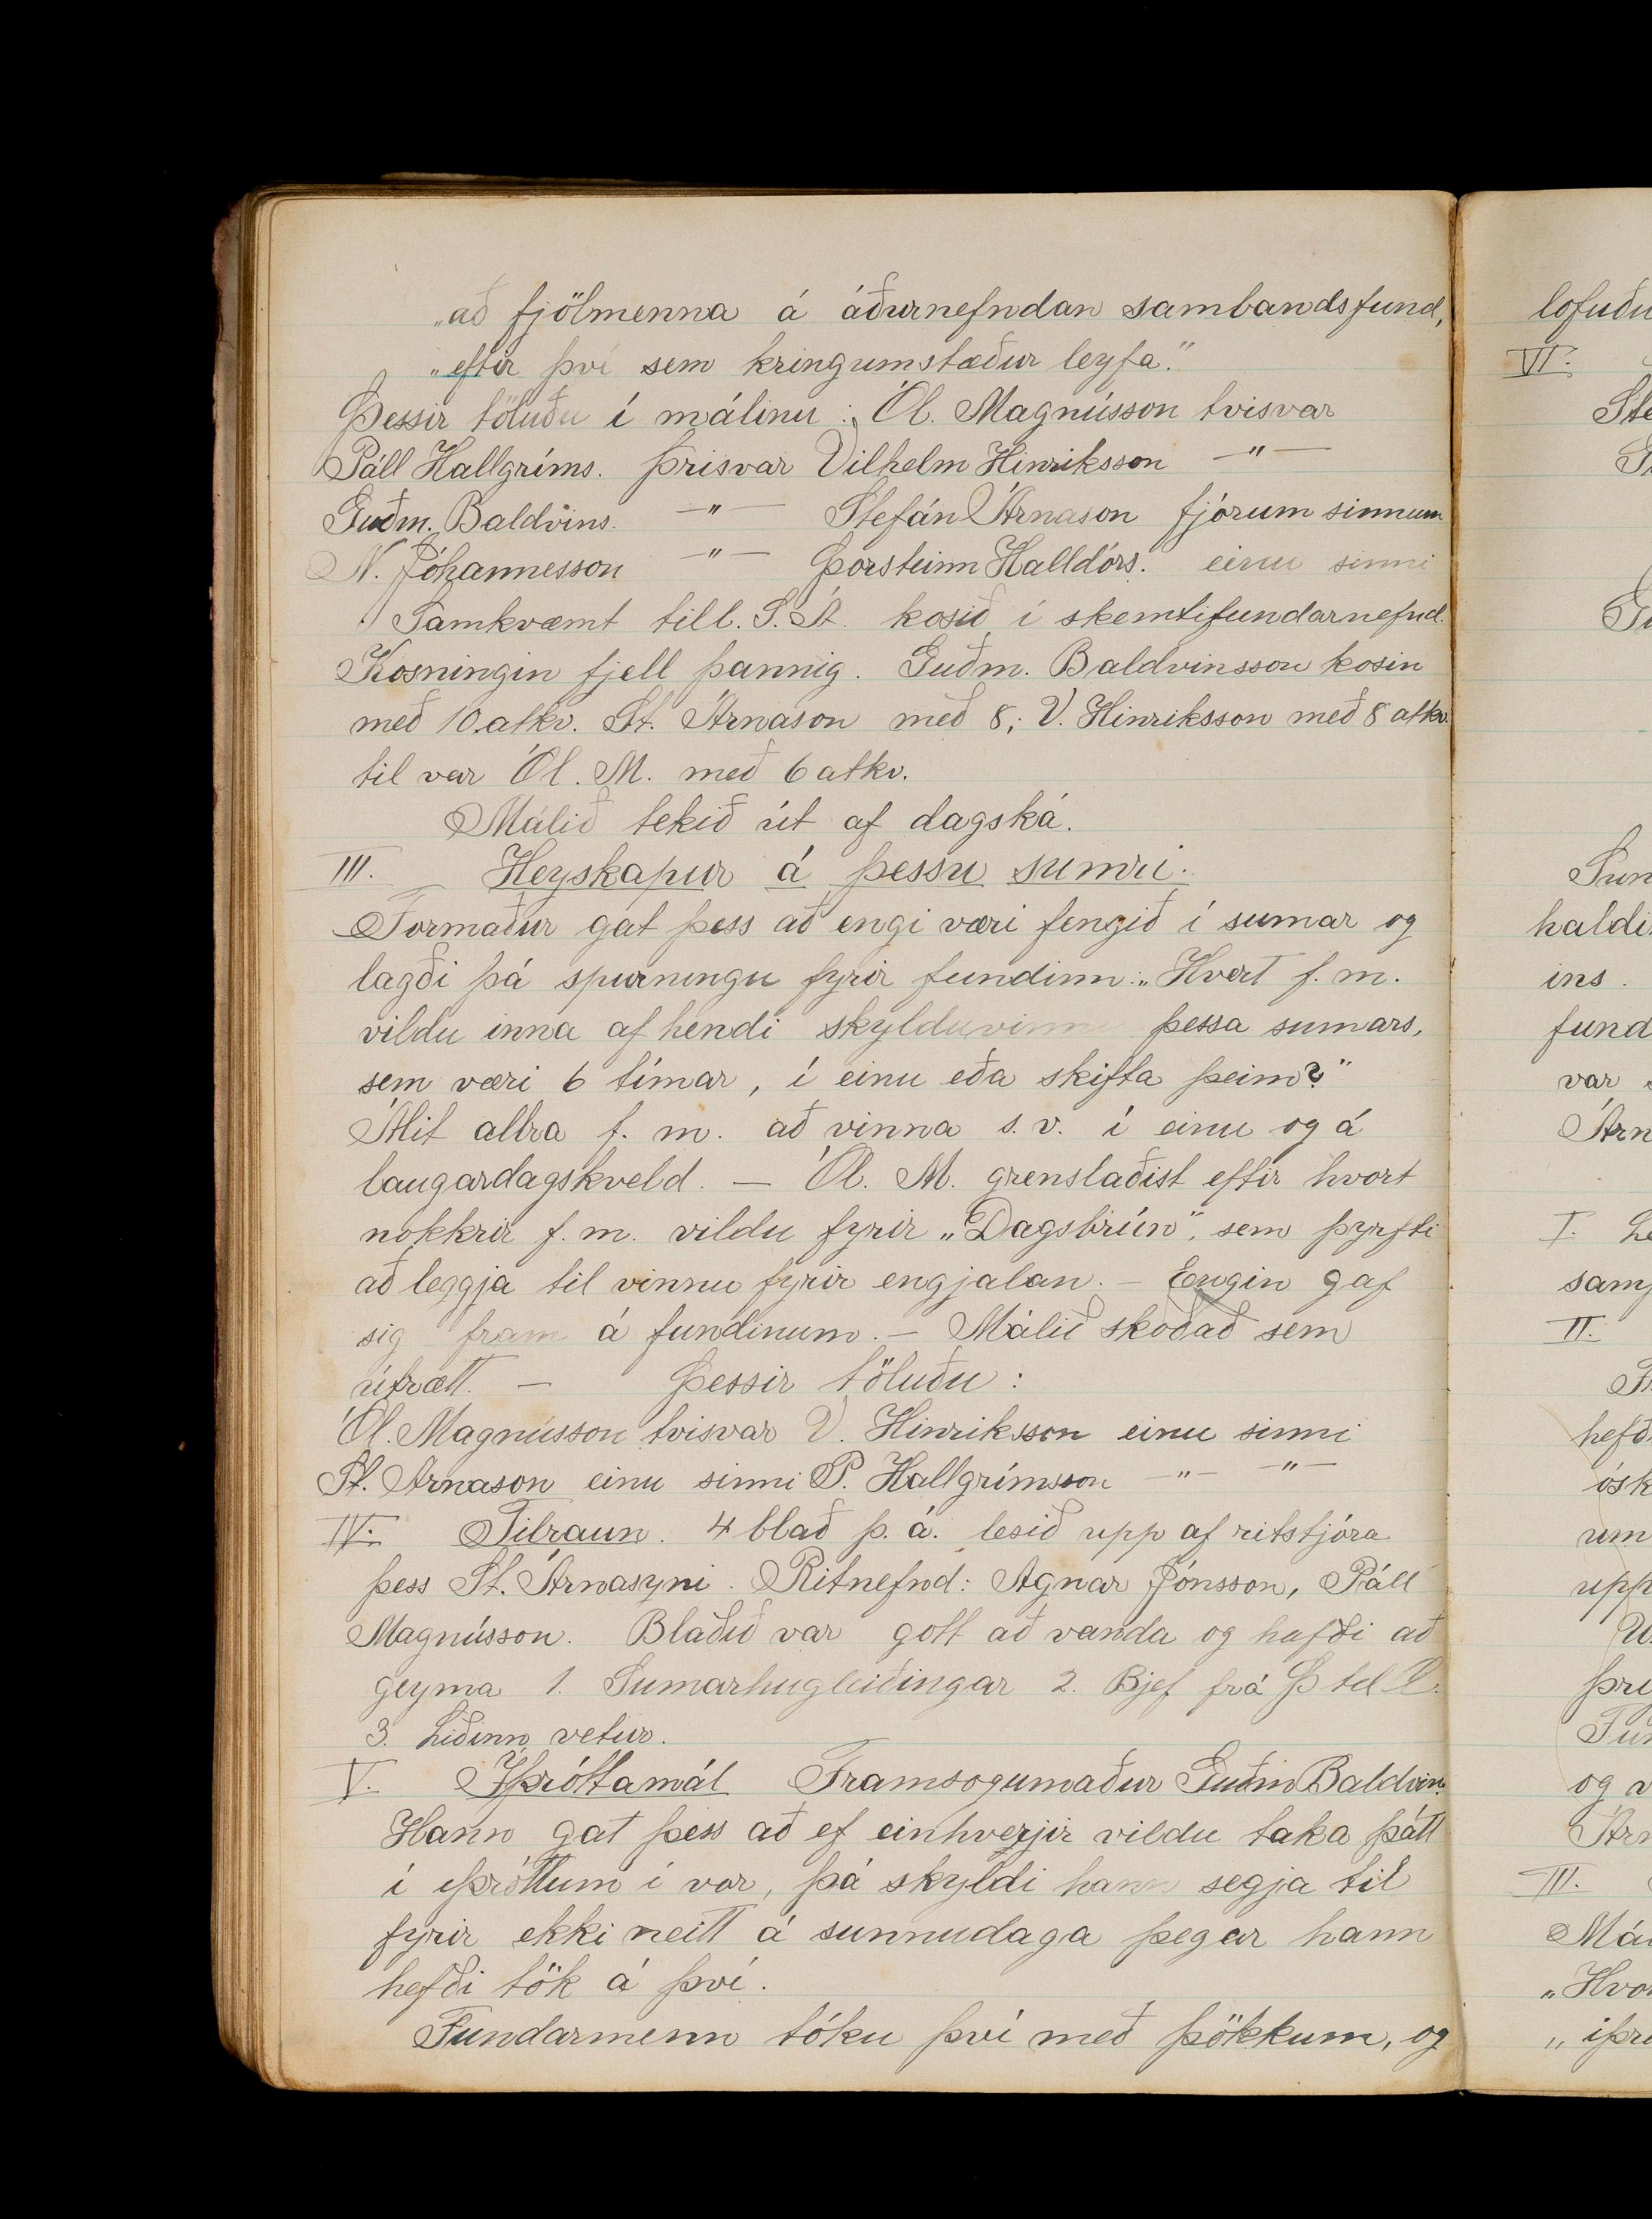 „að fjölmenna á áðurnefndan sambandsfund,
„eftir því sem kringumstæður leyfa."
Þessir töluðu í málinu: Ól. Magnússon tvisvar
Páll Hallgríms. þrisvar Vilhelm Hinriksson —"—
Guðm. Baldvins. —"— Stefán Árnason fjórum sinnum
N. Jóhannesson —"— Þorsteinn Halldórs. einu sinni
Samkvæmt till. S. Á. kosið í skemtifundarnefnd.
Kosningin fjell þannig. Guðm. Baldvinsson kosin
með 10 atkv. St. Árnason með 8; V. Hinriksson með 8 atkv.
til var Ól. M. með 6 atkv.
Málið tekið út af dagská.
III. Heyskapur á þessu sumri.
Formaður gat þess að engi væri fengið í sumar og
lagði þá spurningu fyrir fundinn: „Hvert f. m.
vildu inna af hendi skylduvinnu þessa sumars,
sem væri 6 tímar, í einu eða skifta þeim?"
Álit allra f. m. að vinna s. v. í einu og á
laugardagskveld. — Ól. M. grenslaðist eftir hvort
nokkrir f. m. vildu fyrir „Dagsbrún", sem þyrfti
að leggja til vinnu fyrir engjalan. — Engin gaf
sig fram á fundinum. — Málið skoðað sem
útrætt. — Þessir töluðu:
Ól. Magnússon tvisvar V. Hinriksson einu sinni
St. Árnason einu sinni P. Hallgrímsson —"— —"—
IV. Tilraun. 4 blað þ. á. lesið upp af ritstjóra
þess St. Árnasyni. Ritnefnd: Agnar Jónsson, Páll
Magnússon. Blaðið var gott að vanda og hafði að
geyma 1. Sumarhugleiðingar 2. Bjef frá Þ til L.
3. Liðinn vetur.
V. Íþróttamál Framsogumaður Guðm Baldvin.
Hann gat þess að ef einhverjir vildu taka þátt
í íþróttum í vor, þá skyldi hann segja til
fyrir ekki neitt á sunnudaga þegar hann
hefði tök á því.
Fundarmenn tóku því með þökkum, og
lofuðu
VI.
haldi
ins.
fund
var
Árn
I.
II.
hefð
ósk
um
upp
og v
Árn
III.